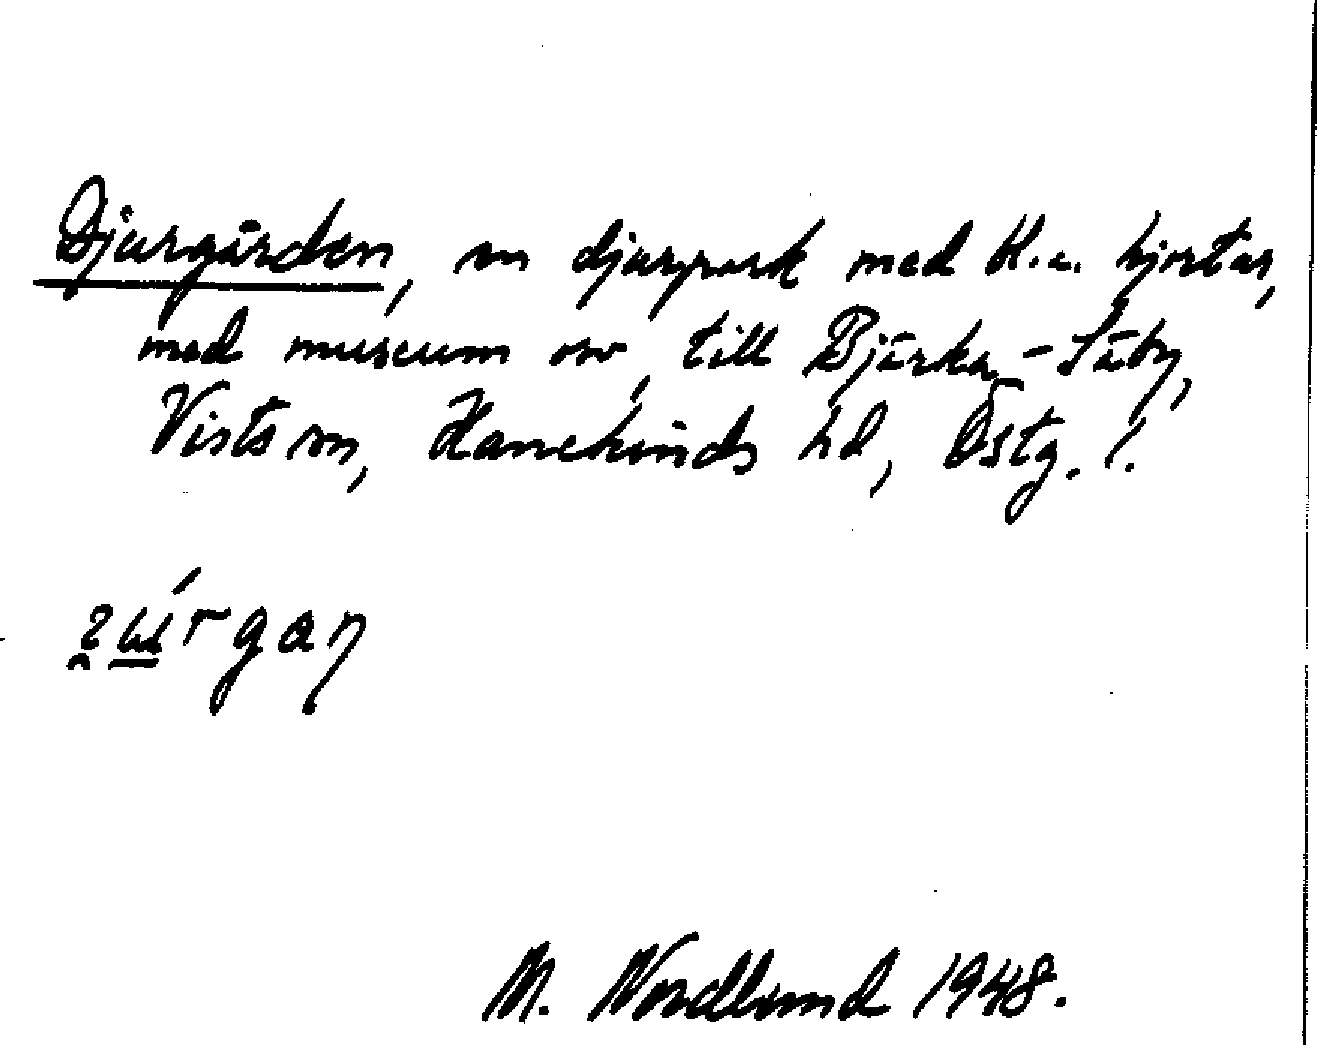 Djurgården, en djurpark med bl.a. hjortar,
med museum osv, till Bjärka-Säby,
Vists sn, Hanekinds hd, Östg. l.
M. Nordlund 1948.